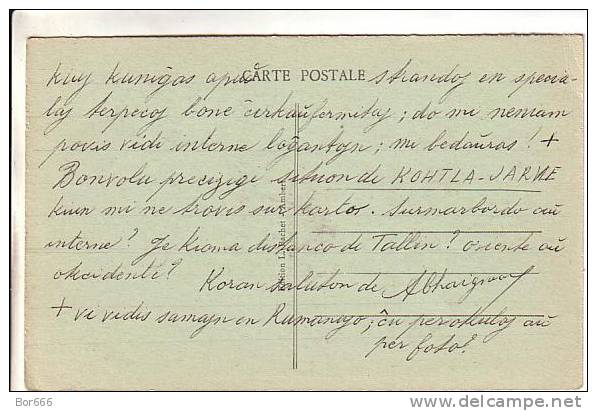 kiuj kunigas apud CARTE POSTALE strandoj en specia-
laj terpecoj bone ĉirkaŭfermitaj; do mi neniam
povis vidi interne loĝantojn; mi bedaŭras! +
Bonvolu precizigi situon de KOHTLA-JARVE
kiun mi ne trovis sur kartos. Surmarbordo aŭ
interne? Je kioma distanco de Tallin? oriente aŭ
okcidente? Koran saluton de
+ vi vidis samajn en Rumanujo; ĉu perokuloj aŭ
per foto?
Edition L. Béchet
Bor666
www.delcampe.net